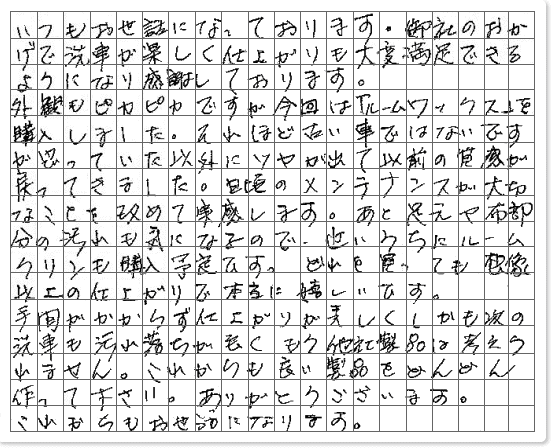 いつもお世話になっております。御社のおか
げで洗車が楽しく仕上がりも大変満足できる
ようになり感謝しております。
外観もピカピカですが今回は「ルームワックス」を
購入しました。それほど古い車ではないです
が思っていた以外にツヤが出て以前の質感が
戻ってきました。日頃のメンテナンスが大切
なことを改めて実感します。あと足元や布部
分の汚れも気になるので、近いうちにルーム
クリンも購入予定です。どれを買っても想像
以上の仕上がりで本当に嬉しいです。
手間がかからず仕上がりが美しくしかも次の
洗車も汚れ落ちが良くもう他社製品は考えら
れません。これからも良い製品をどんどん
作って下さい。ありがとうございます。
これからもお世話になります。